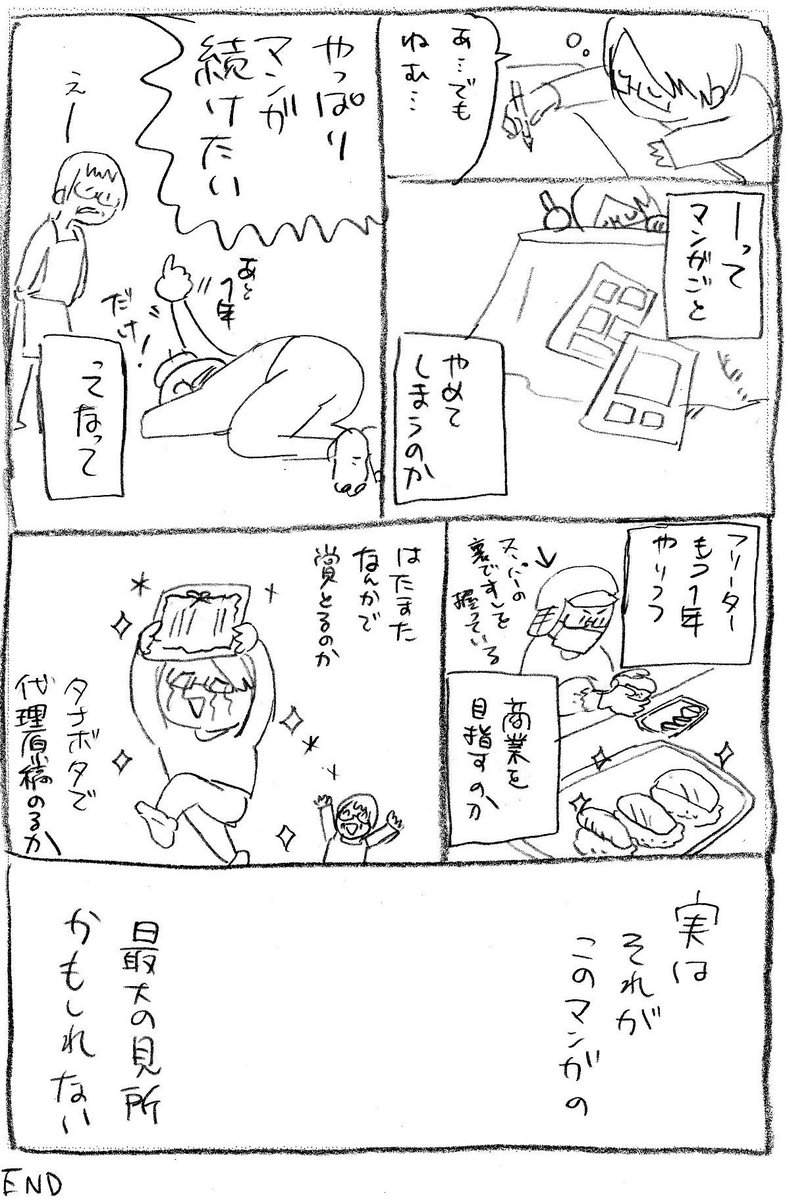 あ…でも
ねむ…
ーって
マンガごと
やめて
しまうのか
やっぱり
マンガ
続けたい
えー
あと
1年
だけ!
ってなって
フリーター
もう1年
やりつつ
スーパーの
裏ですしを
握っている
商業を
目指すのか
はたまた
なんかで
賞とるのか
タナボタで
代理原稿のるか
実は
それが
このマンガの
最大の見所
かもしれない
END